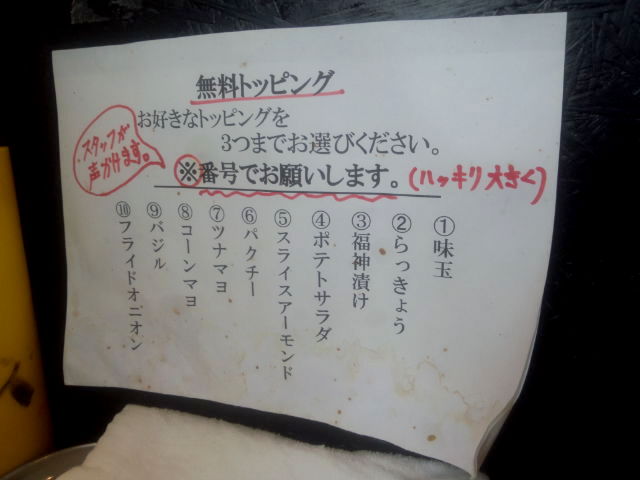 無料トッピング
お好きなトッピングを
3つまでお選びください。
スタッフが
声かけます。
※番号でお願いします。(ハッキリ大きく)
①味玉
②らっきょう
③福神漬け
④ポテトサラダ
⑤スライスアーモンド
⑥パクチー
⑦ツナマヨ
⑧コーンマヨ
⑨バジル
⑩フライドオニオン